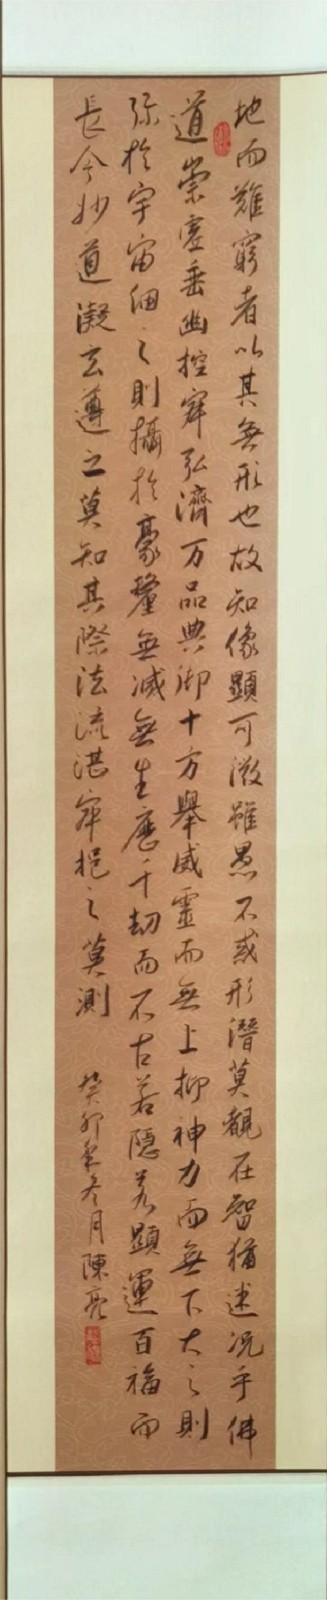 地而難窮者以其無形也故知像顯可徵雖愚不惑形潛莫覩在智猶迷況乎佛
道崇虛乘幽控寂弘濟万品典御十方舉威靈而無上抑神力而無下大之則
弥於宇宙細之則攝於豪釐無滅無生歷千劫而不古若隱若顯運百福而
長今妙道凝玄遵之莫知其際法流湛寂挹之莫測 癸卯年冬月陳亮